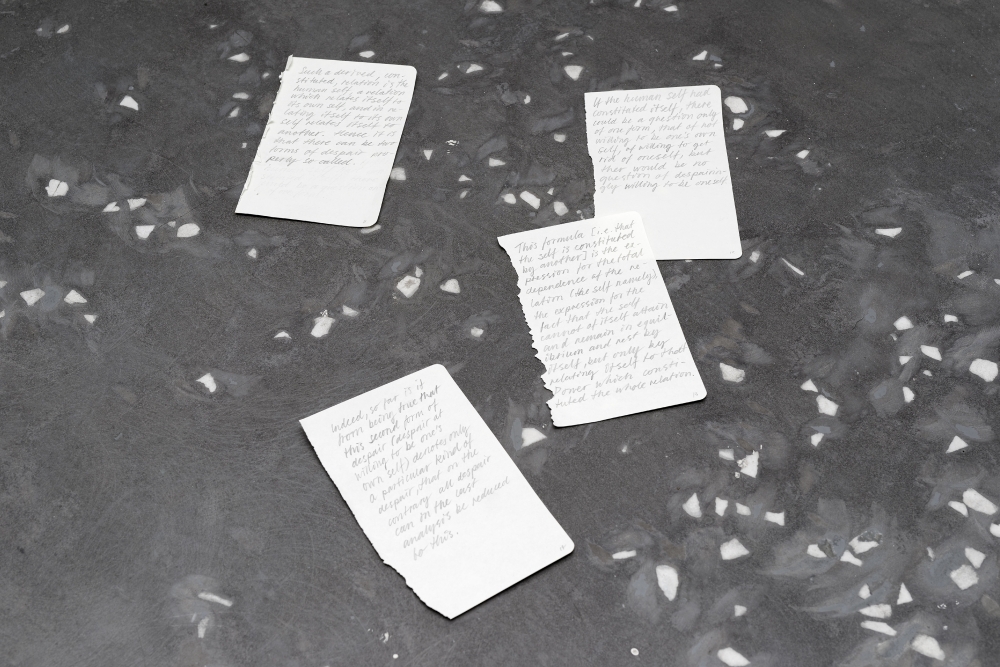 Such a derived, con-
stituted, relation is the
human self, a relation
which relates itself to
its own self, and in re-
lating itself to its own
self relates itself to
another. Hence it is
that there can be two
forms of despair pro-
perly so called.
If the human self had
constituted itself, there
could be a question only
of one form, that of not
willing to be one's own
self, of willing to get
rid of oneself, but
there would be no
question of despairin-
gly willing to be oneself
This formula [i.e. that
the self is constituted
by another] is the ex-
pression for the total
dependence of the re-
lation (the self namely),
the expression for the
fact that the self
cannot of itself attain
and remain in equil-
ibrium and rest by
itself, but only by
relating itself to that
Power which consti-
tuted the whole relation.
Indeed, so far is it
from being true that
this second form of
despair (despair at
willing to be one's
own self) denotes only
a particular kind of
despair, that on the
contrary all despair
can in the last
analysis be reduced
to this.